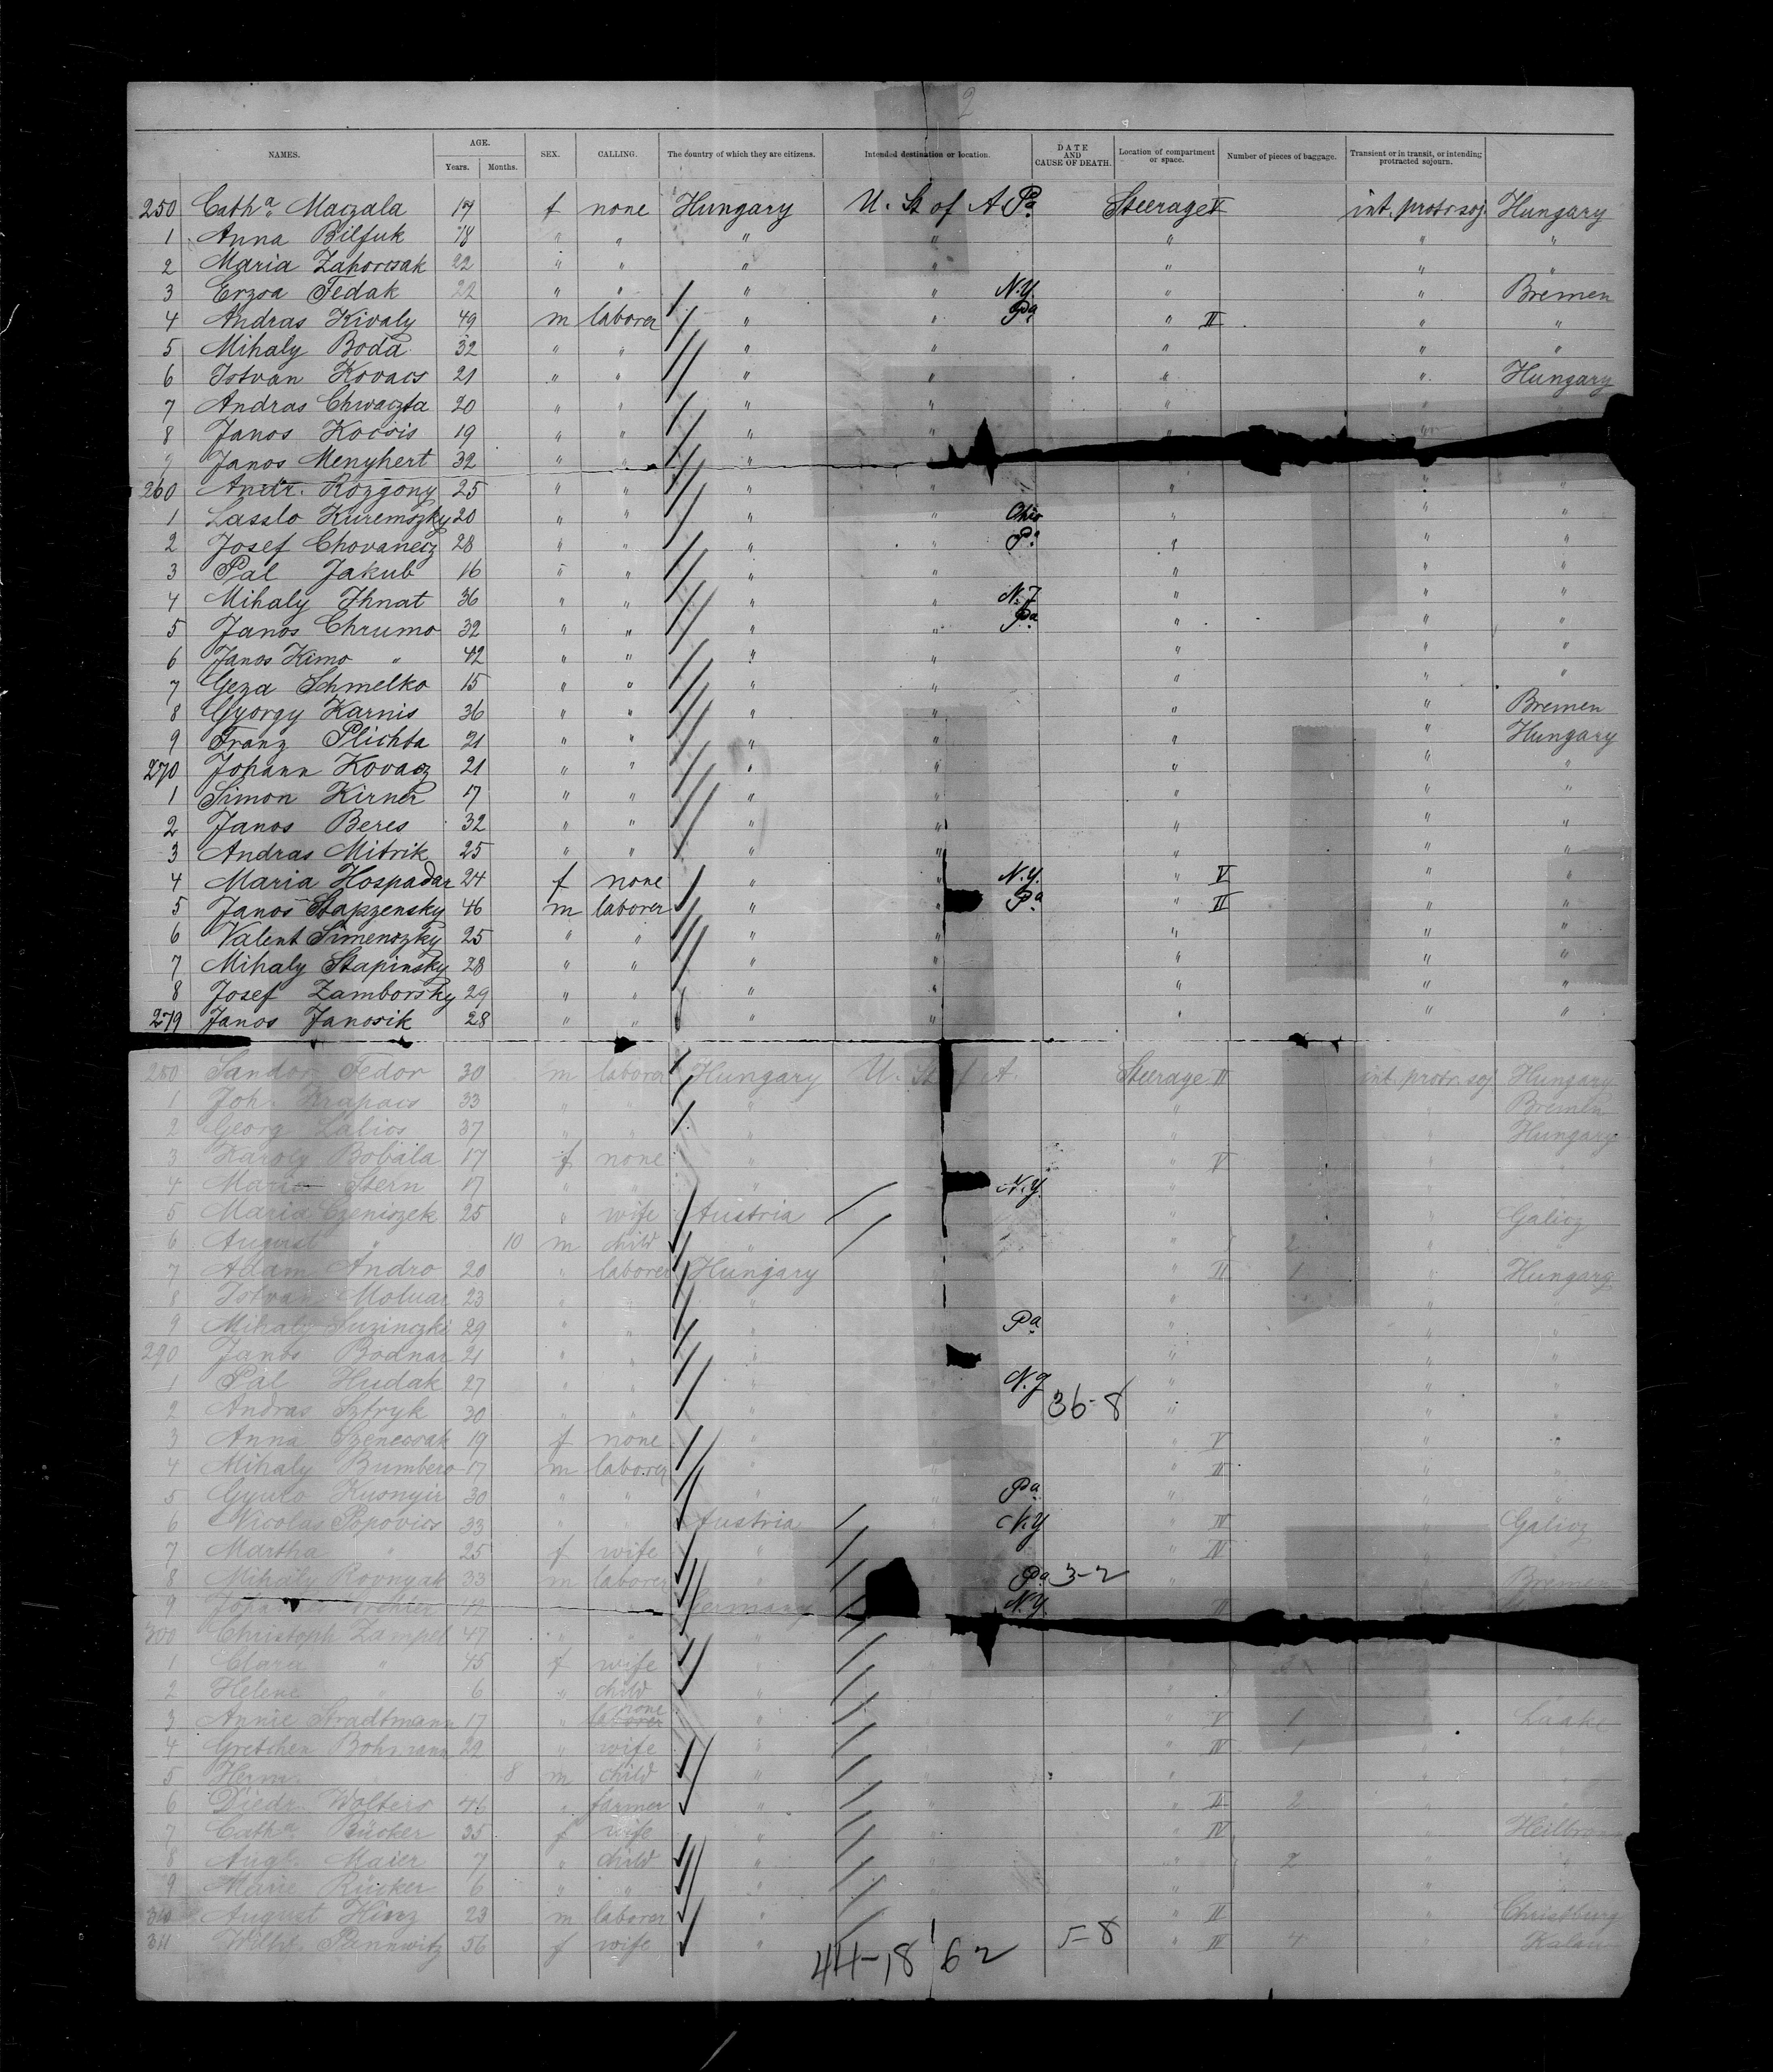 2
NAMES. AGE. Years. Months. SEX. CALLING. The country of which they are citizens. Intended destination or location. DATE AND CAUSE OF DEATH. Location of compartment or space. Number of pieces of baggage. Transient or in transit, or intending protracted sojourn.
250 Cath.a Maczala 17 f none Hungary U. St of A. Pa. Steerage V int. protr soj. Hungary
1 Anna Bilfuk 18 " " " " " " "
2 Maria Zahorcsak 22 " " " " " " "
3 Erzsa Fedak 22 " " " " N.Y. " " Bremen
4 Andras Kivaly 49 m laborer " " Pa. " II " "
5 Mihaly Boda 32 " " " " " " "
6 Istvan Kovacs 21 " " " " " " Hungary
7 Andras Chwaczta 20 " " " " " "
8 Janos Kocsis 19 " " " " " "
9 Janos Menyhert 32 " " "
260 Andr. Rozgony 25 " " " " " " "
1 Laszlo Kuremszky 20 " " " " Ohio " " "
2 Josef Chovanecz 28 " " " " Pa. " " "
3 Pal Jakub 16 " " " " " " "
4 Mihaly Ihnat 36 " " " " N.J. " " "
5 Janos Chrumo 32 " " " " Pa. " " "
6 Janos Kimo " 42 " " " " " " "
7 Geza Schmelko 15 " " " " " " "
8 György Karnis 36 " " " " " " Bremen
9 Franz Plichta 21 " " " " " " Hungary
270 Johann Kovacz 21 " " " " " " "
1 Simon Kirner 17 " " " " " " "
2 Janos Beres 32 " " " " " " "
3 Andras Mitrik 25 " " " " " " "
4 Maria Hospadar 24 f none " " N.Y. " V " "
5 Janos Stapzensky 46 m laborer " " Pa. " II " "
6 Valent Simenszky 25 " " " " " " "
7 Mihaly Stapinsky 28 " " " " " " "
8 Josef Zamborsky 29 " " " " " " "
279 Janos Janosik 28 " " " " " " "
280 Sandor Fedor 30 m laborer Hungary U. St of A. Steerage II int. protr. soj. Hungary
1 Joh. Krapacs 33 " " " " " Bremen
2 Georg Lalios 37 " " " " " Hungary
3 Karoly Bobála 17 f none " " V " "
4 Maria Stern 17 " " " N.Y. "
5 Maria Czeniszek 25 " wife Austria " " Galicz
6 August " 10 m child " " 2 " "
7 Adam Andro 20 " laborer Hungary " II 1 " Hungary
8 Istvan Moluar 23 " " " " " "
9 Mihaly Luzinczki 29 " " " Pa. " " "
290 Janos Bodnar 21 " " " " " "
1 Pál Hudak 27 " " " N.J. " " "
2 Andras Sztryk 30 " " " 36-8 " " "
3 Anna Szenecsak 19 f none " " V " "
4 Mihaly Bumbero 17 m laborer " " II " "
5 Gyula Kusnyir 30 " " " Pa. " " "
6 Nicolas Popovics 33 " " Austria N.Y " IV " Galicz
7 Martha " 25 f wife " " IV "
8 Mihaly Rovnyak 33 m laborer " Pa. 3-2 " " Bremen
9 Germany N.Y. II
300 Christoph Zampel 47 " " "
1 Clara " 45 f wife "
2 Helene " 6 " child " "
3 Annie Stradtmann 17 " laborer none " " V 1 " Laake
4 Gretchen Bohmann 22 " wife " " IV 1
5 Herm. 8 m child " "
6 Diedr. Wolters 46 " farmer " " II 2
7 Cath.a Rücker 35 f wife " " IV " Heilbronn
8 Augt. Maier 7 " child " " 2 " "
9 Marie Rücker 6 " " " " "
310 August Hinz 23 m laborer " " II " Christburg
311 Wilhe. Pannwitz 56 f wife " 5-8 " IV 4 " Kalau
44-18 62